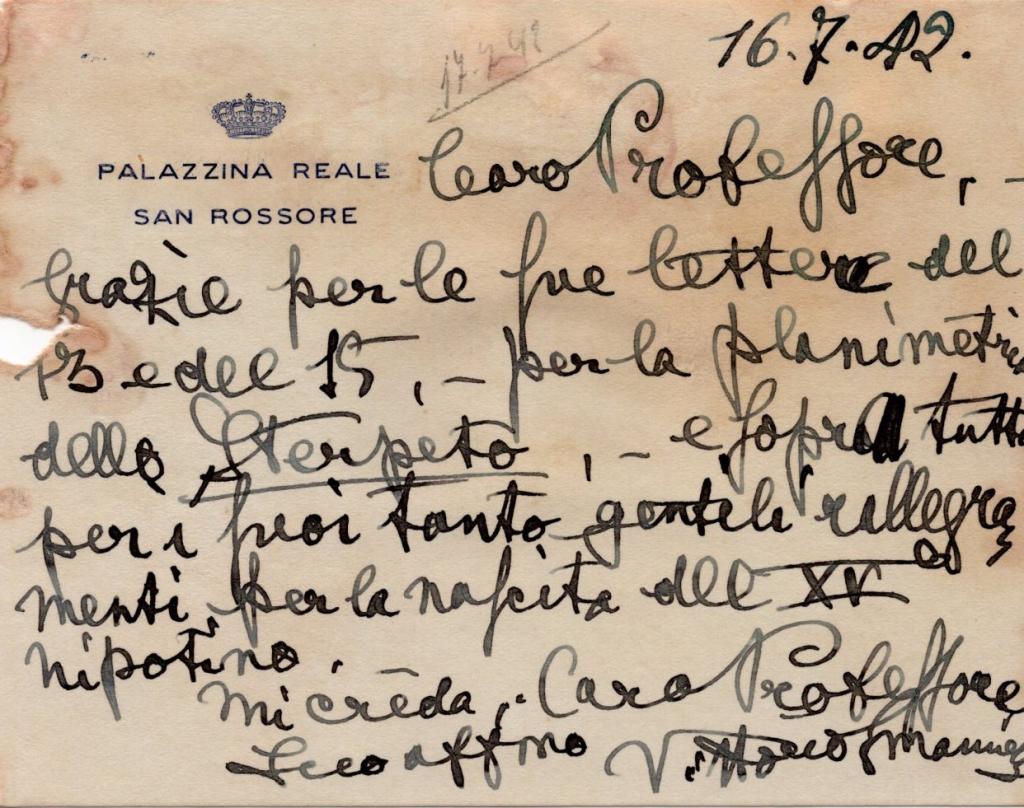 17.7.42
16.7.42.
PALAZZINA REALE
SAN ROSSORE
Caro Professore, -
Grazie per le sue lettere del
13 e del 15, - per la planimetria
dello Sterpeto, - e sopra tutto
per i suoi tanto gentili rallegra
menti per la nascita del XV°
nipotino.
Mi creda, Caro Professore,
Suo affmo Vittorio